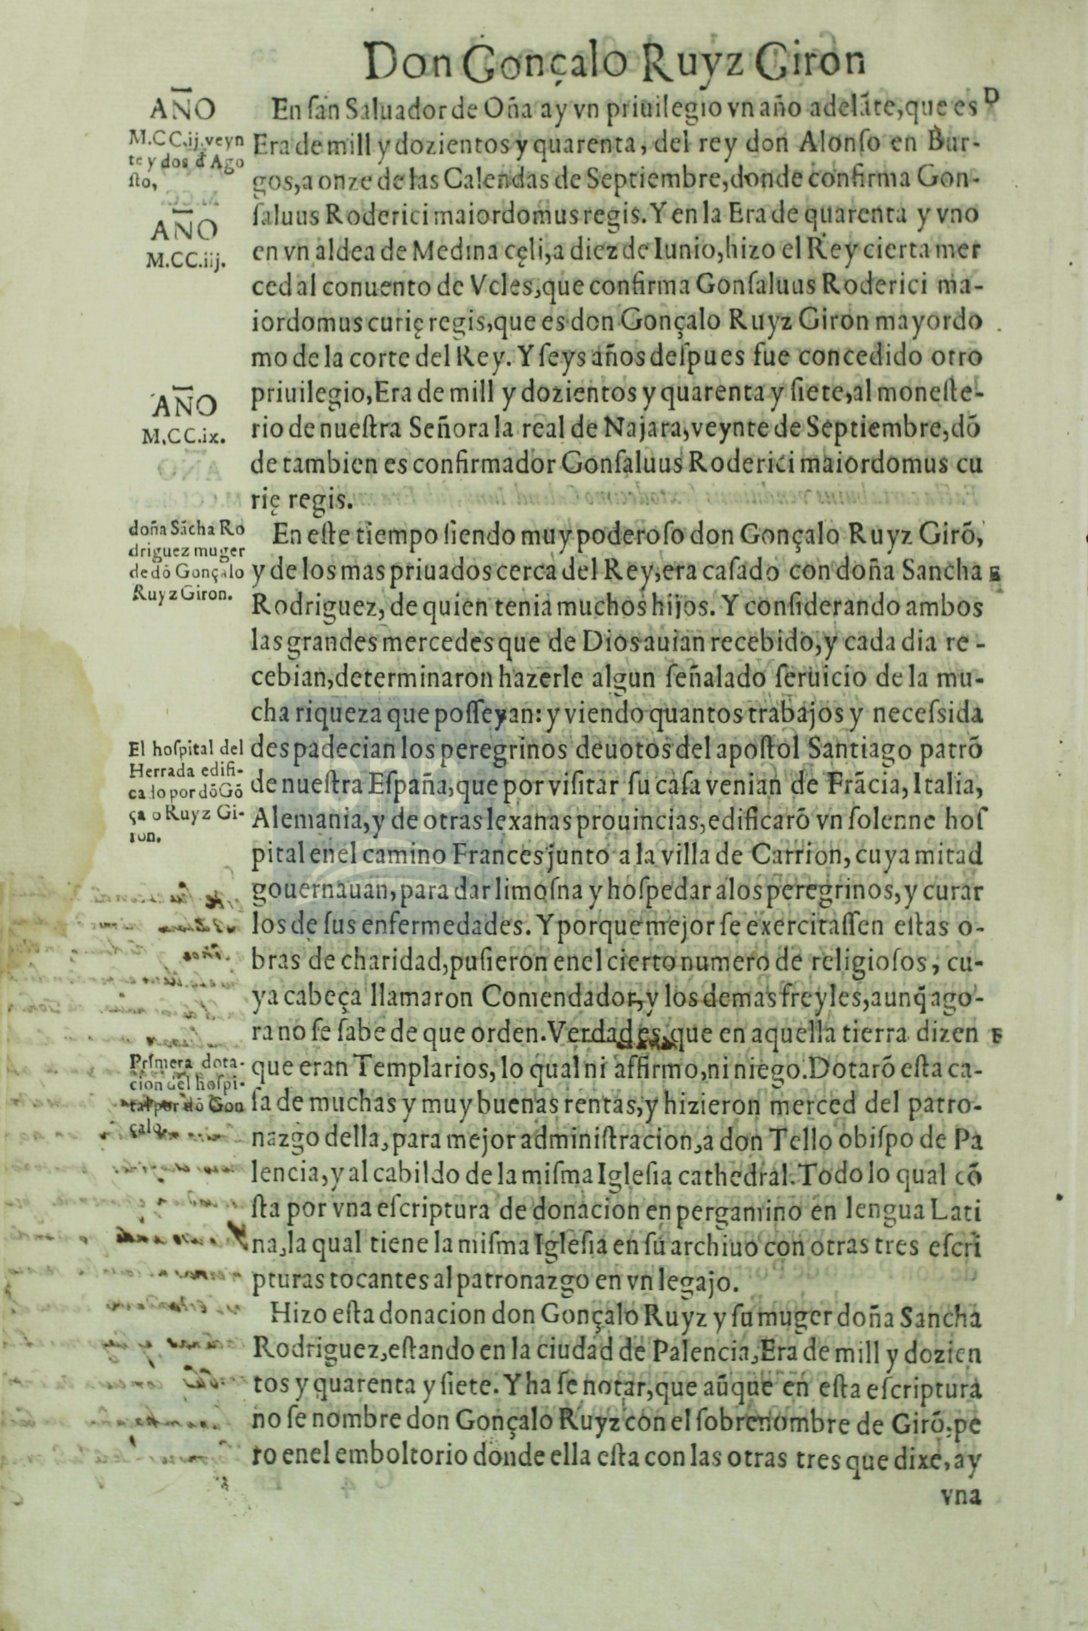 Don Gonçalo Ruyz Giron
AÑO
M.CC.ij.veyn
te y dos đ Ago
ſto,
AÑO
M.CC.iij.
AÑO
M.CC.ix.
doña Sãcha Ro
driguez muger
de dõ Gonçalo
Ruyz Giron.
El hoſpital del
Herrada edifi-
cado por dõ Gõ
çalo Ruyz Gi-
ron.
Primera dota-
cion del hoſpi-
tal por dõ Gon
çalo.
En ſan Saluador de Oña ay vn priuilegio vn año adelãte, que es D
Era de mill y dozientos y quarenta, del rey don Alonſo en Bur-
gos, a onze de las Calendas de Septiembre, donde confirma Gon-
ſaluus Roderici maiordomus regis. Y en la Era de quarenta y vno
en vn aldea de Medina cęli, a diez de Iunio, hizo el Rey cierta mer
ced al conuento de Vcles, que confirma Gonſaluus Roderici ma-
iordomus curię regis, que es don Gonçalo Ruyz Giron mayordo
mo de la corte del Rey. Y ſeys años deſpues fue concedido otro
priuilegio, Era de mill y dozientos y quarenta y ſiete, al moneſte-
rio de nueſtra Señora la real de Najara, veynte de Septiembre, dõ
de tambien es confirmador Gonſaluus Roderici maiordomus cu
rię regis.
En eſte tiempo ſiendo muy poderoſo don Gonçalo Ruyz Girõ,
y de los mas priuados cerca del Rey, era caſado con doña Sancha E
Rodriguez, de quien tenia muchos hijos. Y conſiderando ambos
las grandes mercedes que de Dios auian recebido, y cada dia re-
cebian, determinaron hazerle algun ſeñalado ſeruicio de la mu-
cha riqueza que poſſeyan: y viendo quantos trabajos y neceſsida
des padecian los peregrinos deuotos del apoſtol Santiago patrõ
de nueſtra Eſpaña, que por viſitar ſu caſa venian de Frãcia, Italia,
Alemania, y de otras lexanas prouincias, edificarõ vn ſolenne hoſ
pital en el camino Frances junto a la villa de Carrion, cuya mitad
gouernauan, para dar limoſna y hoſpedar a los peregrinos, y curar
los de ſus enfermedades. Y porque mejor ſe exercitaſſen eſtas o-
bras de charidad, puſieron en el cierto numero de religioſos, cu-
ya cabeça llamaron Comendador, y los demas freyles, aunq̃ ago-
ra no ſe ſabe de que orden. Verdad es, que en aquella tierra dizen F
que eran Templarios, lo qual ni affirmo, ni niego. Dotarõ eſta ca-
ſa de muchas y muy buenas rentas, y hizieron merced del patro-
nazgo della, para mejor adminiſtracion, a don Tello obiſpo de Pa
lencia, y al cabildo de la miſma Igleſia cathedral. Todo lo qual cõ
ſta por vna eſcriptura de donacion en pergamino en lengua Lati
na, la qual tiene la miſma Igleſia en ſu archiuo con otras tres eſcri
pturas tocantes al patronazgo en vn legajo.
Hizo eſta donacion don Gonçalo Ruyz y ſu muger doña Sancha
Rodriguez, eſtando en la ciudad de Palencia, Era de mill y dozien
tos y quarenta y ſiete. Y ha ſe notar, que aũque en eſta eſcriptura
no ſe nombre don Gonçalo Ruyz con el ſobrenombre de Girõ, pe
ro en el emboltorio donde ella eſta con las otras tres que dixe, ay
vna